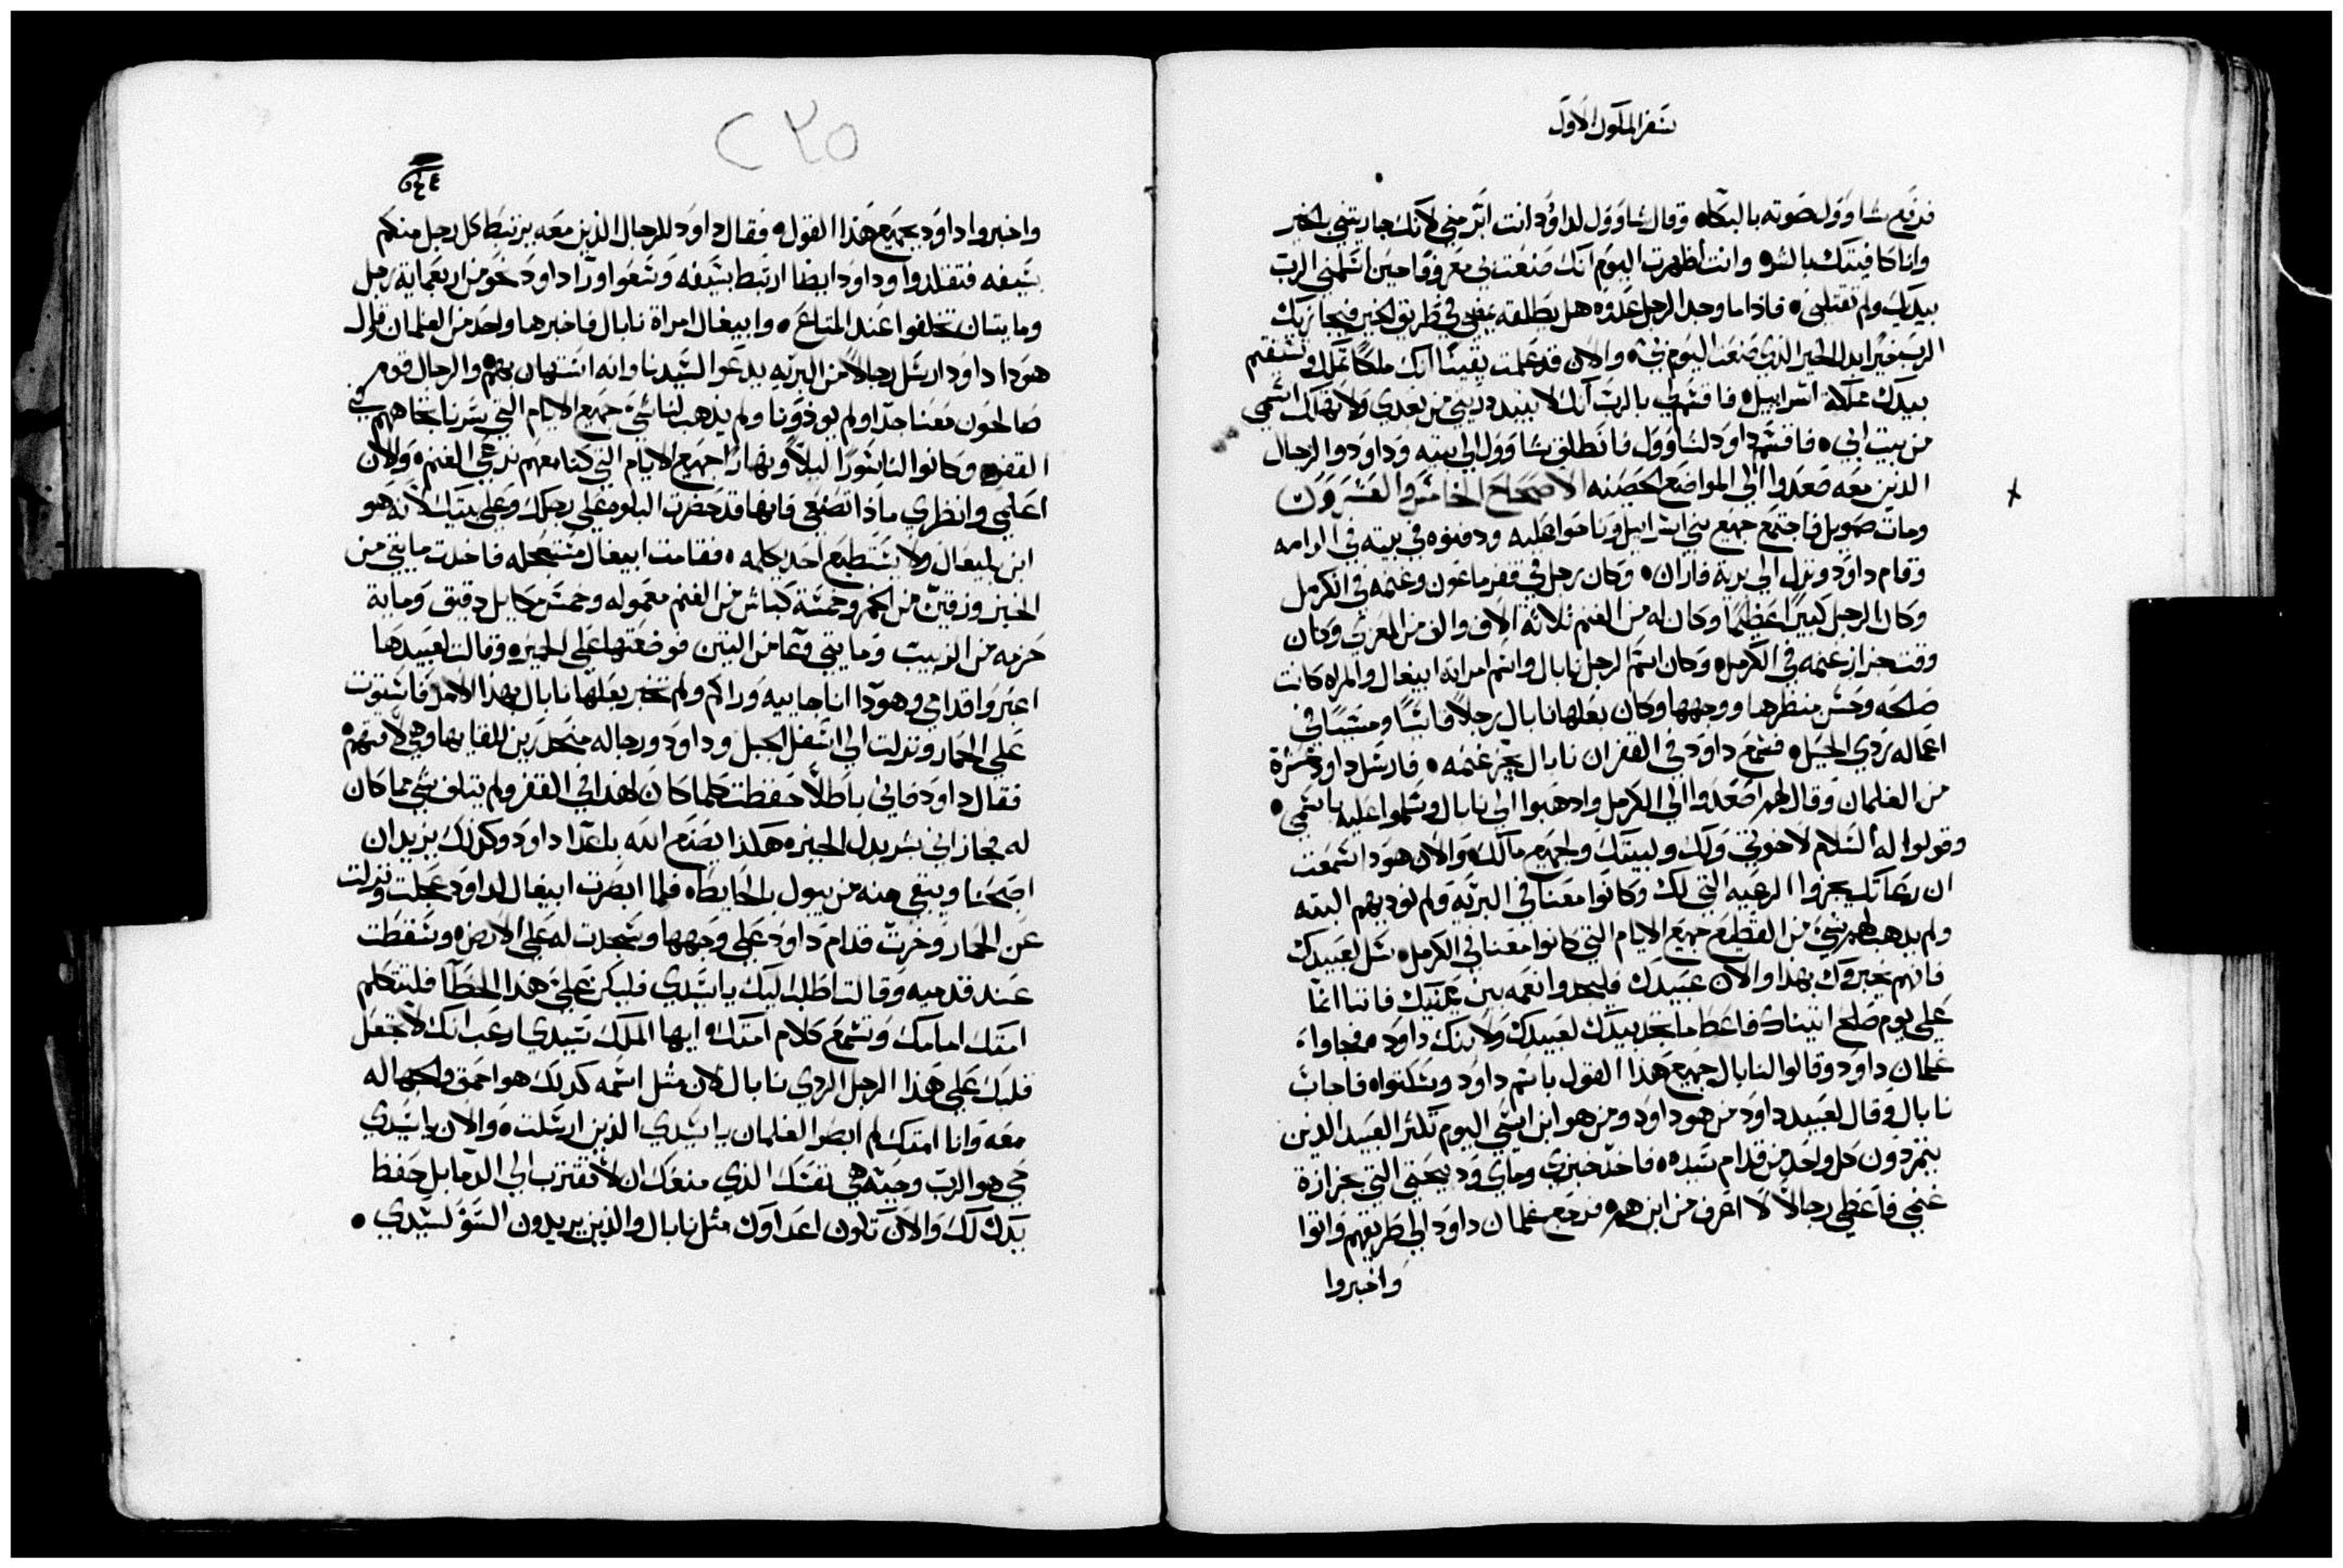 سفر الملوك الاول
فرفع شاوول صوته بالبكاء وقال شاوول لداوود انت ابر مني لانك جازيتني بالخير
وانا كافيتك بالسوء وانت اظهرت اليوم انك صنعت بي معروفا حين اسلمني الرب
بيديك ولم تقتلني فاذا ما وجد الرجل عدوه هل يطلقه يمضي في طريق الخير فيجازيك
الرب خيرا بدل الخير الذي صنعت اليوم بي والان قد علمت يقينا انك ملكا تملك وتستقيم
بيدك مملكة اسراييل فاقسم لي بالرب انك لا تبيد ذريتي من بعدي ولا تهلك اسمي
من بيت ابي فاقسم داود لشاوول فانطلق شاوول الي بيته وداوود والرجال
الذين معه صعدوا الي المواضع الحصنه الاصحاح الخامس والعشرون
ومات صمويل فاجتمع جميع بني اسراييل وناحوا عليه ودفنوه في بيته في الرامه
وقام داود ونزل الي برية فاران وكان رجل في قفر ماعون وغنمه في الكرمل
وكان الرجل كبيرا عظيما وكان له من الغنم ثلاثة الاف والف من المعزي وكان
وقت جزاز غنمه في الكرمل وكان اسم الرجل نابال واسم امراته ابيغال والمراه كانت
صالحه وحسن منظرها ووجهها وكان بعلها نابال رجلا قاسيا ومسيا في
اعماله ردي الحيل فسمع داود في القفر ان نابال يجز غنمه فارسل داود عشرة
من الغلمان وقال لهم اصعدوا الي الكرمل وادهبوا الي نابال وسلموا عليه باسمي
وقولوا له السلام لاخوتي ولك ولبيتك ولجميع مالك والان هودا سمعت
ان رعاتك يجزوا الرعيه التي لك وكانوا معنا في البريه ولم نوديهم البته
ولم يدهب لهم شي من القطيع جميع الايام التي كانوا معنا في الكرمل سل لعبيدك
فانهم يخبروك بهذا والان عبيدك فليجدوا نعمه بين عينيك فاننا انما
علي يوم صلح اتيناك فاعط ما تجد بيدك لعبيدك ولابنك داود فجاوا
غلمان داود وقالوا لنابال جميع هذا القول باسم داود وسكتوا فاجاب
نابال وقال لعبيد داود من هو داود ومن هو ابن ايسي اليوم تكثر العبيد الذين
يتمردون كل واحد من قدام سيده فاخذ خبزي وماي ودبيحتي التي بجزازة
غنمي فاعطي رجالا لا اعرف من اين هم فرجع غلمان داود الي طريقهم واتوا
واخبروا
٢٣٥
واخبروا داود بجميع هذا القول فقال داود للرجال الذين معه يرتبط كل رجل منكم
بسيفه فتقلدوا وداود ايضا ارتبط بسيفه وسعوا ورا داود نحو من اربعماية رجل
ومايتان تخلفوا عند المتاع وابيغال امراة نابال فاخبرها واحد من الغلمان قايل
هودا داود ارسل رجالا من البريه يدعوا لسيدنا وانه استهان بهم والرجال قوم
صالحون معنا جدا ولم يوذونا ولم يذهب لنا شي جميع الايام التي سرنا تجاههم في
القفر وكانوا لنا سورا ليلا ونهارا جميع الايام التي كنا معهم نرعي الغنم والان
اعلمي وانظري ماذا تصنعي فانها قد حضرت البلوه علي رجلك وعلي بيتك لانه هو
ابن بليعال ولا يستطيع احد يكلمه فقامت ابيغال مستعجله فاخدت مايتي من
الخبز وزقين من الخمر وخمسة كباش من الغنم معموله وخمس مكاييل دقيق وماية
حزمه من الزبيب ومايتي وعا من التين فوضعتها علي الحمير وقالت لعبيدها
اعبروا قدامي وهودا انا جاييه وراكم ولم تخبر بعلها نابال بهذا الامر فاستوت
علي الحمار ونزلت الي اسفل الجبل وداود ورجاله منحدرين للقايها وهي لاقتهم
فقال داود فاني باطلا حفظت كلما كان لهذا في القفر ولم يتلف شي مما كان
له فجازاني شر بدل الخير هكذا يصنع الله باعدا داود وكذلك يزيد ان
اصبحنا ويبقي منه من يبول بالحايط فلما ابصرت ابيغال لداود عجلت ونزلت
عن الحمار وخرت قدام داود علي وجهها وسجدت له علي الارض وسقطت
عند قدميه وقالت اطلب اليك يا سيدي فليكن علي هذا الخطا فلتتكلم
امتك امامك وتسمع كلام امتك ايها الملك سيدي ارغب انك لا تجعل
قلبك علي هذا الرجل الردي نابال لان مثل اسمه كدلك هو احمق والجهاله
معه وانا امتك لم ابصر الغلمان يا سيدي الذين ارسلت والان يا سيدي
حي هو الرب وحيه هي نفسك الذي منعك ان لا تقترب الي الدما بل حفظ
يدك لك والان تكون اعداوك مثل نابال والذين يريدون السؤ لسيدي